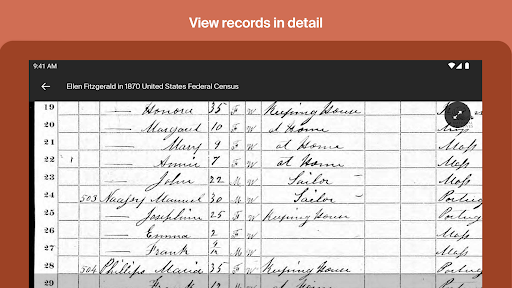 View records in detail
9:41 AM
Ellen Fitzgerald in 1870 United States Federal Census
19 — Honora 35 F W Keeping House
20 — Margaret 10 F W At Home Mass
21 — Mary 9 F W at Home Mass
22 1 — Annie 7 F W at Home Mass
23 — John 22 M W Sailor Mass
24 503 Manuel 30 M W Sailor
25 — Josephine 25 F W Keeping House
26 — Emma 2 F W Mass
27 — Frank M W Mass
28 504 Phillips Maria 35 F W Keeping House
Frank 12 M W